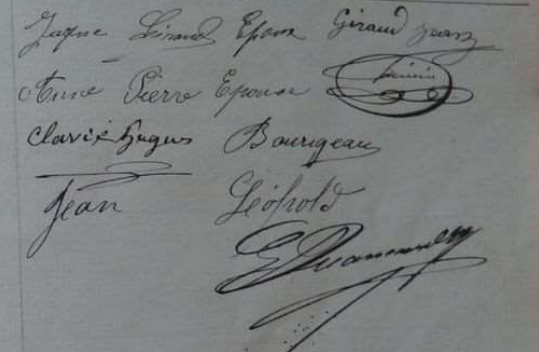 Jaque Giraud Epoux Giraud Jean
Anne Pierre Epouse
Clavix Hugus Bourigeau
Jean Léopold